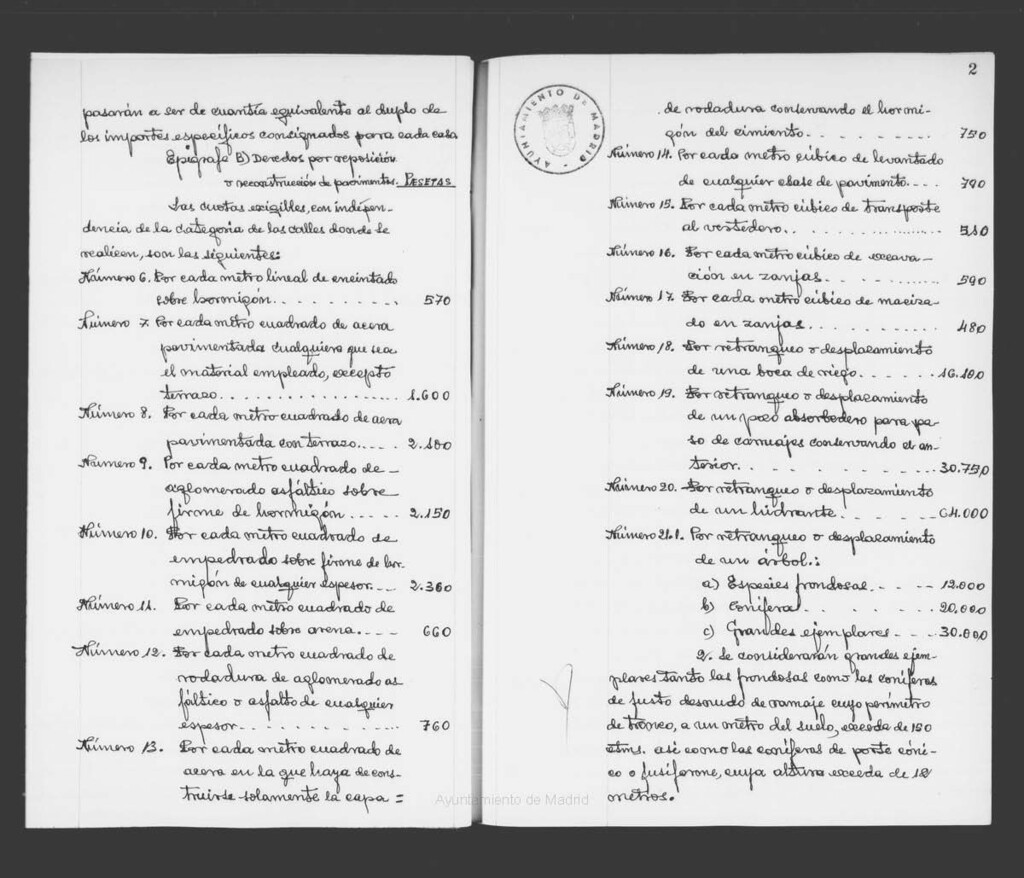 pasarán a ser de cuantía equivalente al duplo de
los importes específicos consignados para cada caso
Epígrafe B) Derechos por reposición
o reconstrucción de pavimentos. PESETAS
Las cuotas exigibles, con indepen-
dencia de la categoría de las calles donde se
realicen, son las siguientes:
Número 6. Por cada metro lineal de encintado
sobre hormigón. . . . . . . . . 570
Número 7. Por cada metro cuadrado de acera
pavimentada cualquiera que sea
el material empleado, excepto
terrazo. . . . . . . . . . . . . . 1.600
Número 8. Por cada metro cuadrado de acera
pavimentada con terrazo. . . . 2.100
Número 9. Por cada metro cuadrado de
aglomerado asfáltico sobre
firme de hormigón . . . . . 2.150
Número 10. Por cada metro cuadrado de
empedrado sobre firme de hor-
migón de cualquier espesor. . . 2.360
Número 11. Por cada metro cuadrado de
empedrado sobre arena. . . . 660
Número 12. Por cada metro cuadrado de
rodadura de aglomerado as
fáltico o asfalto de cualquier
espesor. . . . . . . . . . . . 760
Número 13. Por cada metro cuadrado de
acera en la que haya de cons-
truirse solamente la capa =
2
AYUNTAMIENTO DE MADRID
de rodadura conservando el hormi-
gón del cimiento. . . . . . . . 750
Número 14. Por cada metro cúbico de levantado
de cualquier clase de pavimento. . . 790
Número 15. Por cada metro cúbico de transporte
al vertedero. . . . . . . . . .
Número 16. Por cada metro cúbico de excava-
ción en zanjas. . . . . . . . 590
Número 17. Por cada metro cúbico de maciza-
do en zanjas. . . . . . . . . . 480
Número 18. Por retranqueo o desplazamiento
de una boca de riego. . . . . . 16.100
Número 19. Por retranqueo o desplazamiento
de un pozo absorbedero para pa-
so de carruajes conservando el an-
terior. . . . . . . . . . . 30.750
Número 20. Por retranqueo o desplazamiento
de un hidrante. . . . . . . 64.000
Número 21.1. Por retranqueo o desplazamiento
de un árbol.:
a) Especies frondosas. . . . . 12.000
b) Conífera . . . . . . . 20.000
c) Grandes ejemplares. . . . 30.000
2. Se considerarán grandes ejem-
plares tanto las frondosas como las coníferas
de fuste desnudo de ramaje cuyo perímetro
de tronco, a un metro del suelo, exceda de 150
ctms. así como las coníferas de porte cóni-
co o fusiforme, cuya altura exceda de 12
metros.
Ayuntamiento de Madrid